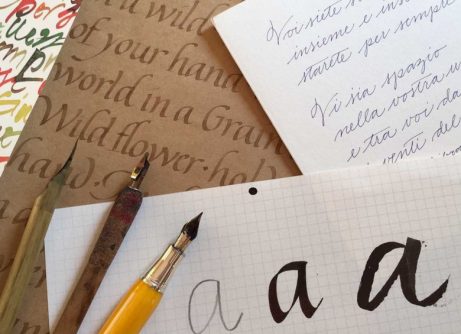 a wild
of your hand
world in a Grain
Wild flower · hol
hand) ·
Voi siete
insieme e ins
starete per sempre
Vi sia spazio
nella vostra u
e tra voi da
venti del
a a a